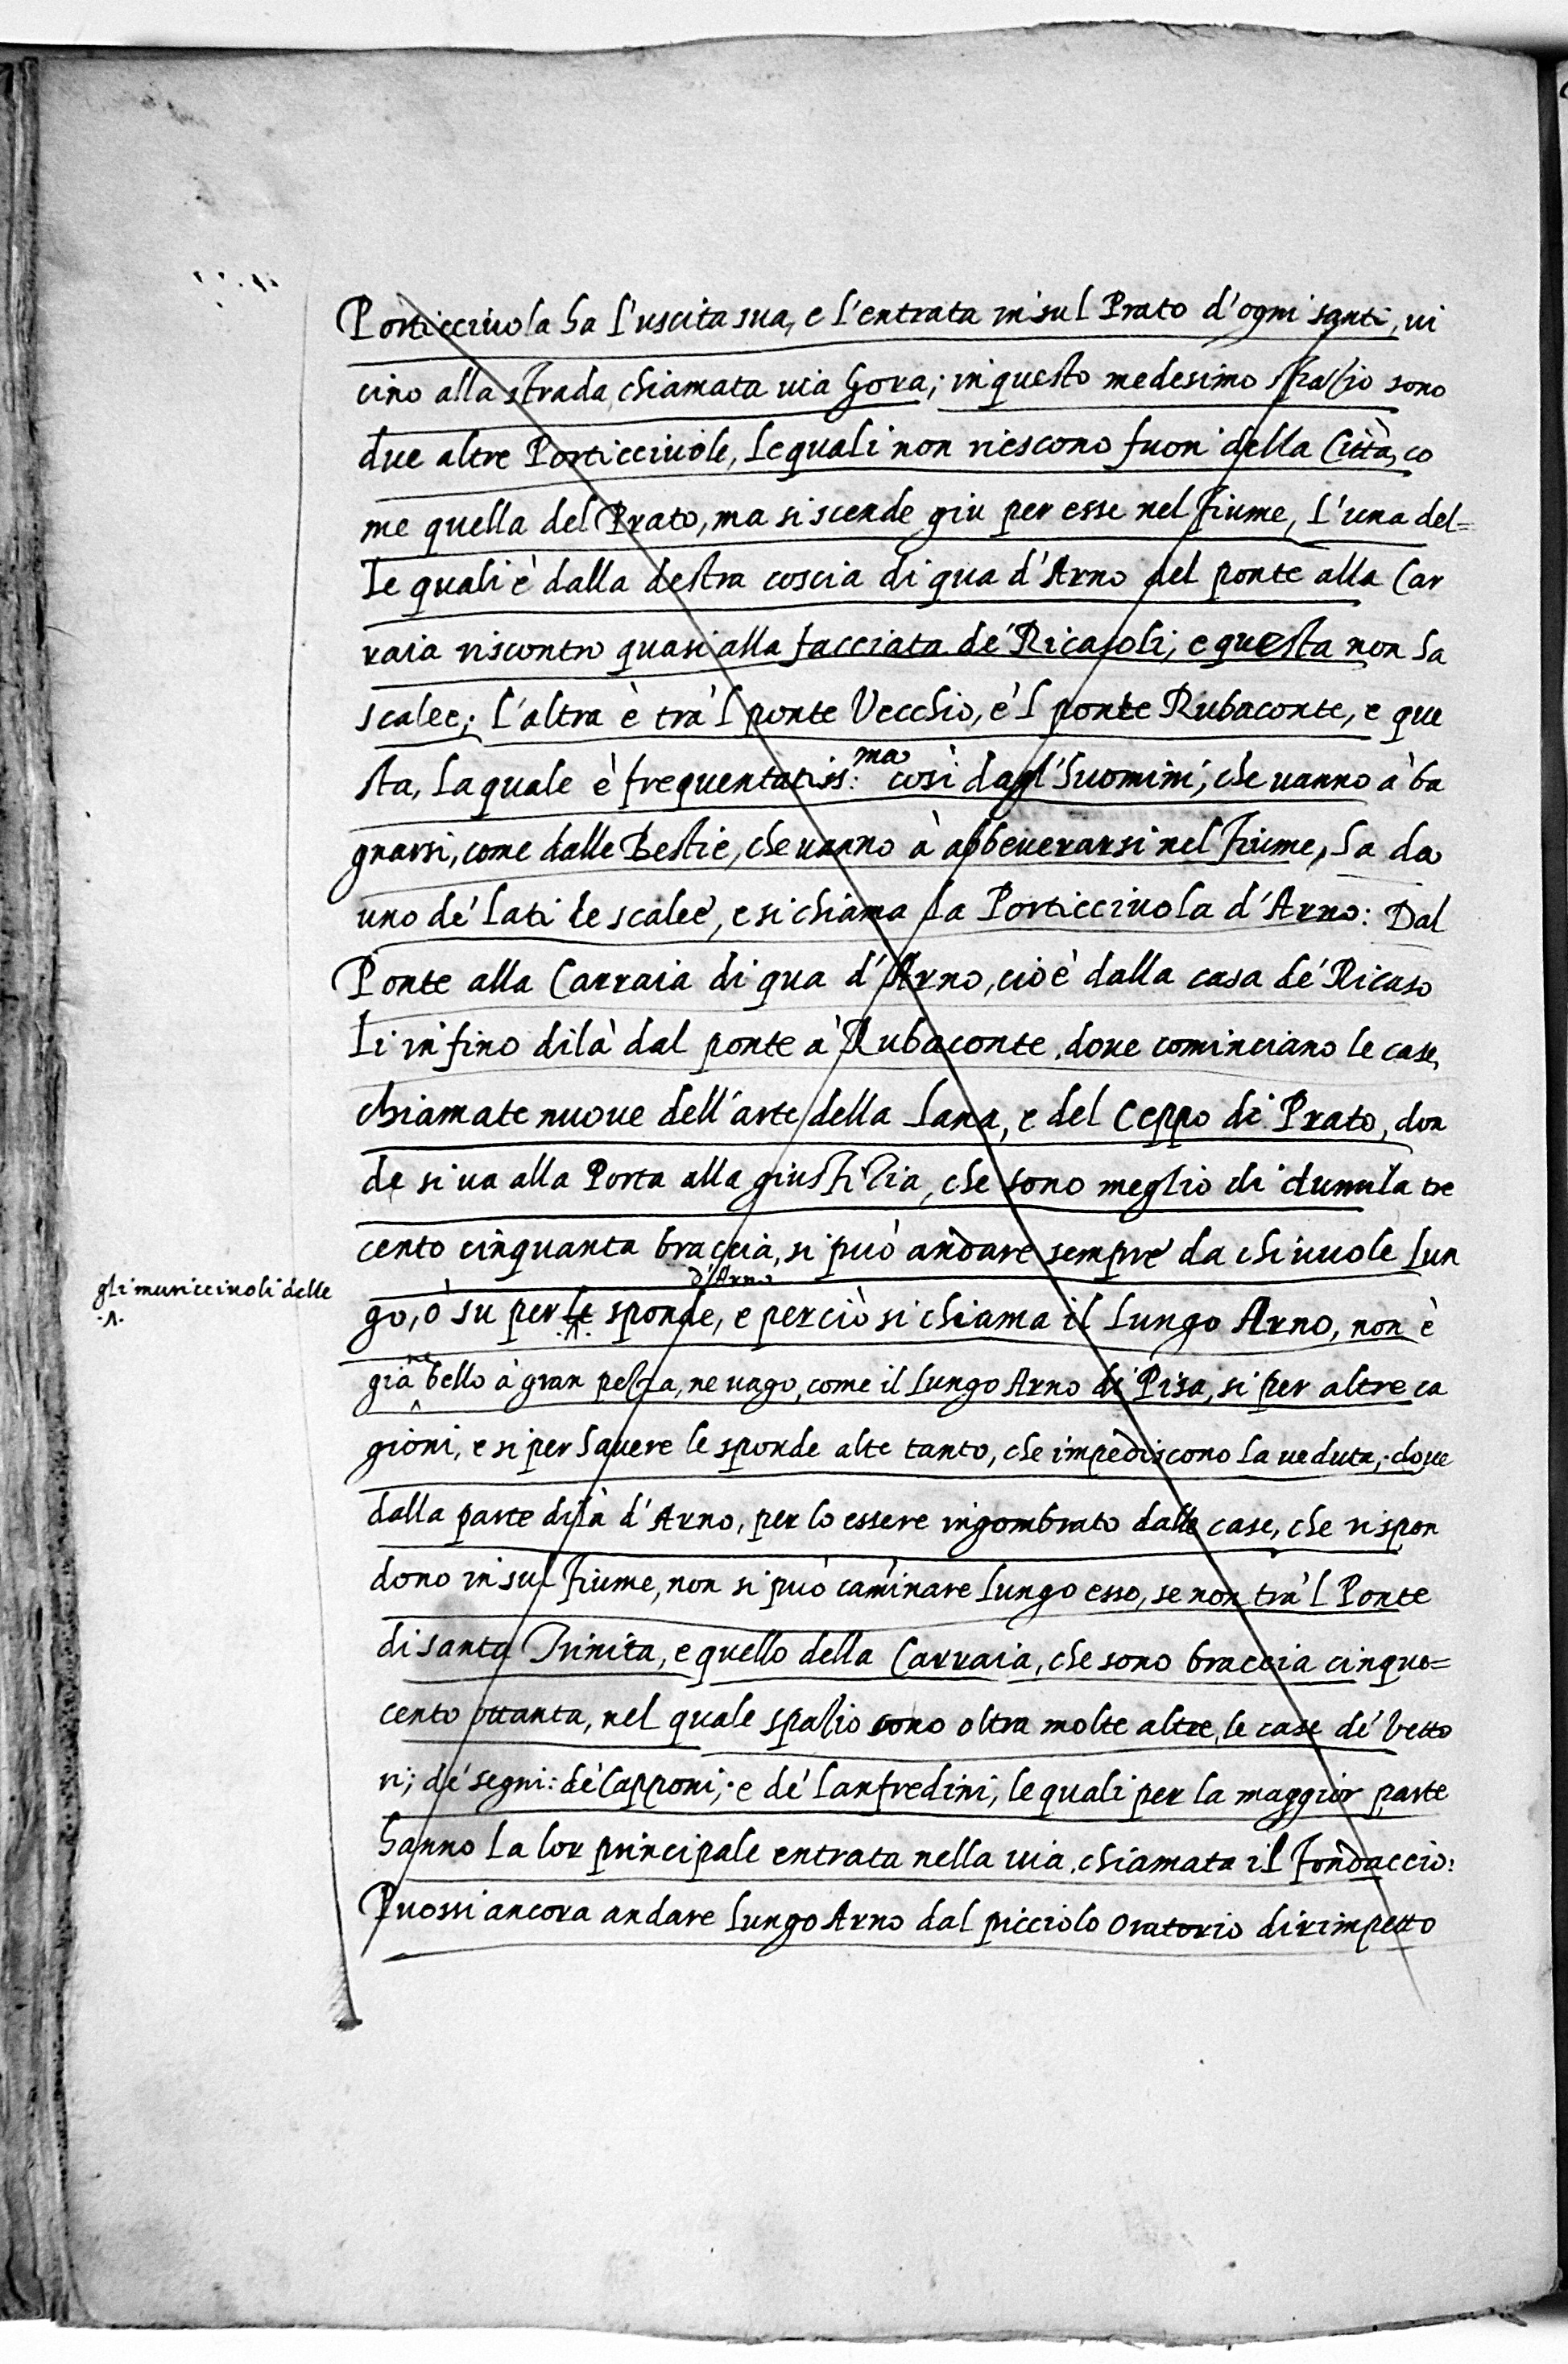 Porticciuola ha l'uscita sua, e l'entrata in sul Prato d'ogni santi, ui
cino alla strada chiamata uia Gora; in questo medesimo spazio sono
due altre Porticciuole, lequali non riescono fuori della Città, co
me quella del Prato, ma si scende giu per esse nel fiume, l'una del=
le quali è dalla destra coscia di qua d'Arno del ponte alla Car
raia riscontro quasi alla facciata de' Ricasoli, e questa non ha
scalee; l'altra è tra'l ponte Vecchio, e'l ponte Rubaconte, e que
sta, laquale è frequentatiss:ma così dagl'huomini, che uanno à ba
gnarsi, come dalle Bestie, che uanno à abbeuerarsi nel fiume, ha da
uno de' lati le scalee, e si chiama la Porticciuola d'Arno: Dal
Ponte alla Carraia di qua d'Arno, cioè dalla casa de' Ricaso
li in fino dilà dal ponte à Rubaconte, doue cominciano le case,
chiamate nuoue dell'arte della lana, e del Ceppo di Prato, don
de si ua alla Porta alla giustizia, che sono meglio di dumila tre
cento cinquanta braccia, si può andare sempre da chi uuole lun
gli muricciuoli delle
d'Arno
go, ò su per le sponde, e perciò si chiama il lungo Arno, non è
già ne bello à gran pezza, ne uago, come il lungo Arno di Pisa, si per altre ca
gioni, e si per hauere le sponde alte tanto, che impediscono la ueduta; doue
dalla parte dilà d'Arno, per lo essere ingombrato dalle case, che rispon
dono in sul fiume, non si può caminare lungo esso, se non tra'l Ponte
di santa Trinita, e quello della Carraia, che sono braccia cinque=
cento ottanta, nel quale spazio sono oltra molte altre, le case de' Vetto
ri; de' segni: de' Capponi; e de' lanfredini, le quali per la maggior parte
hanno la lor principale entrata nella uia chiamata il fondaccio:
Puossi ancora andare lungo Arno dal picciolo oratorio dirimpetto